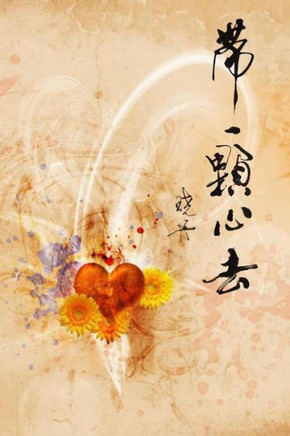 帶一顆心去
晓丹